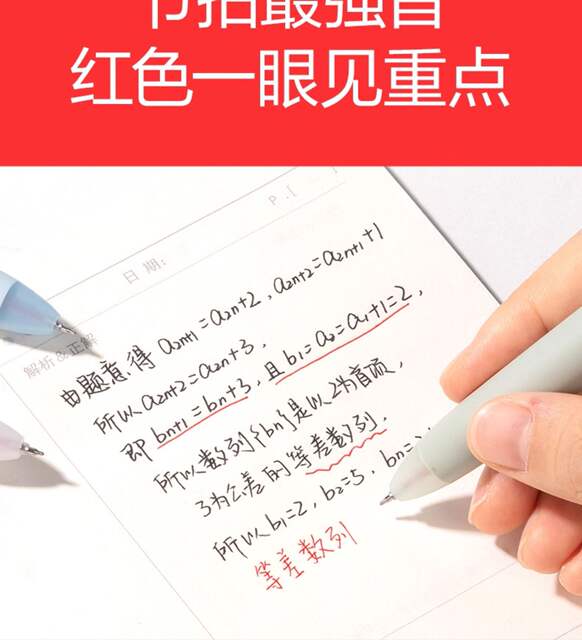 节拍最强音
红色一眼见重点
P.[ ]
日期:
解析&正解
由题意得 a2n+1=a2n+2, a2n+2=a2n+1+1
所以 a2n+2=a2n+3,
即 bn+1=bn+3, 且 b1=a2=a1+1=2,
所以数列{bn}是以2为首项,
3为公差的等差数列.
所以 b1=2, b2=5, bn=
等差数列